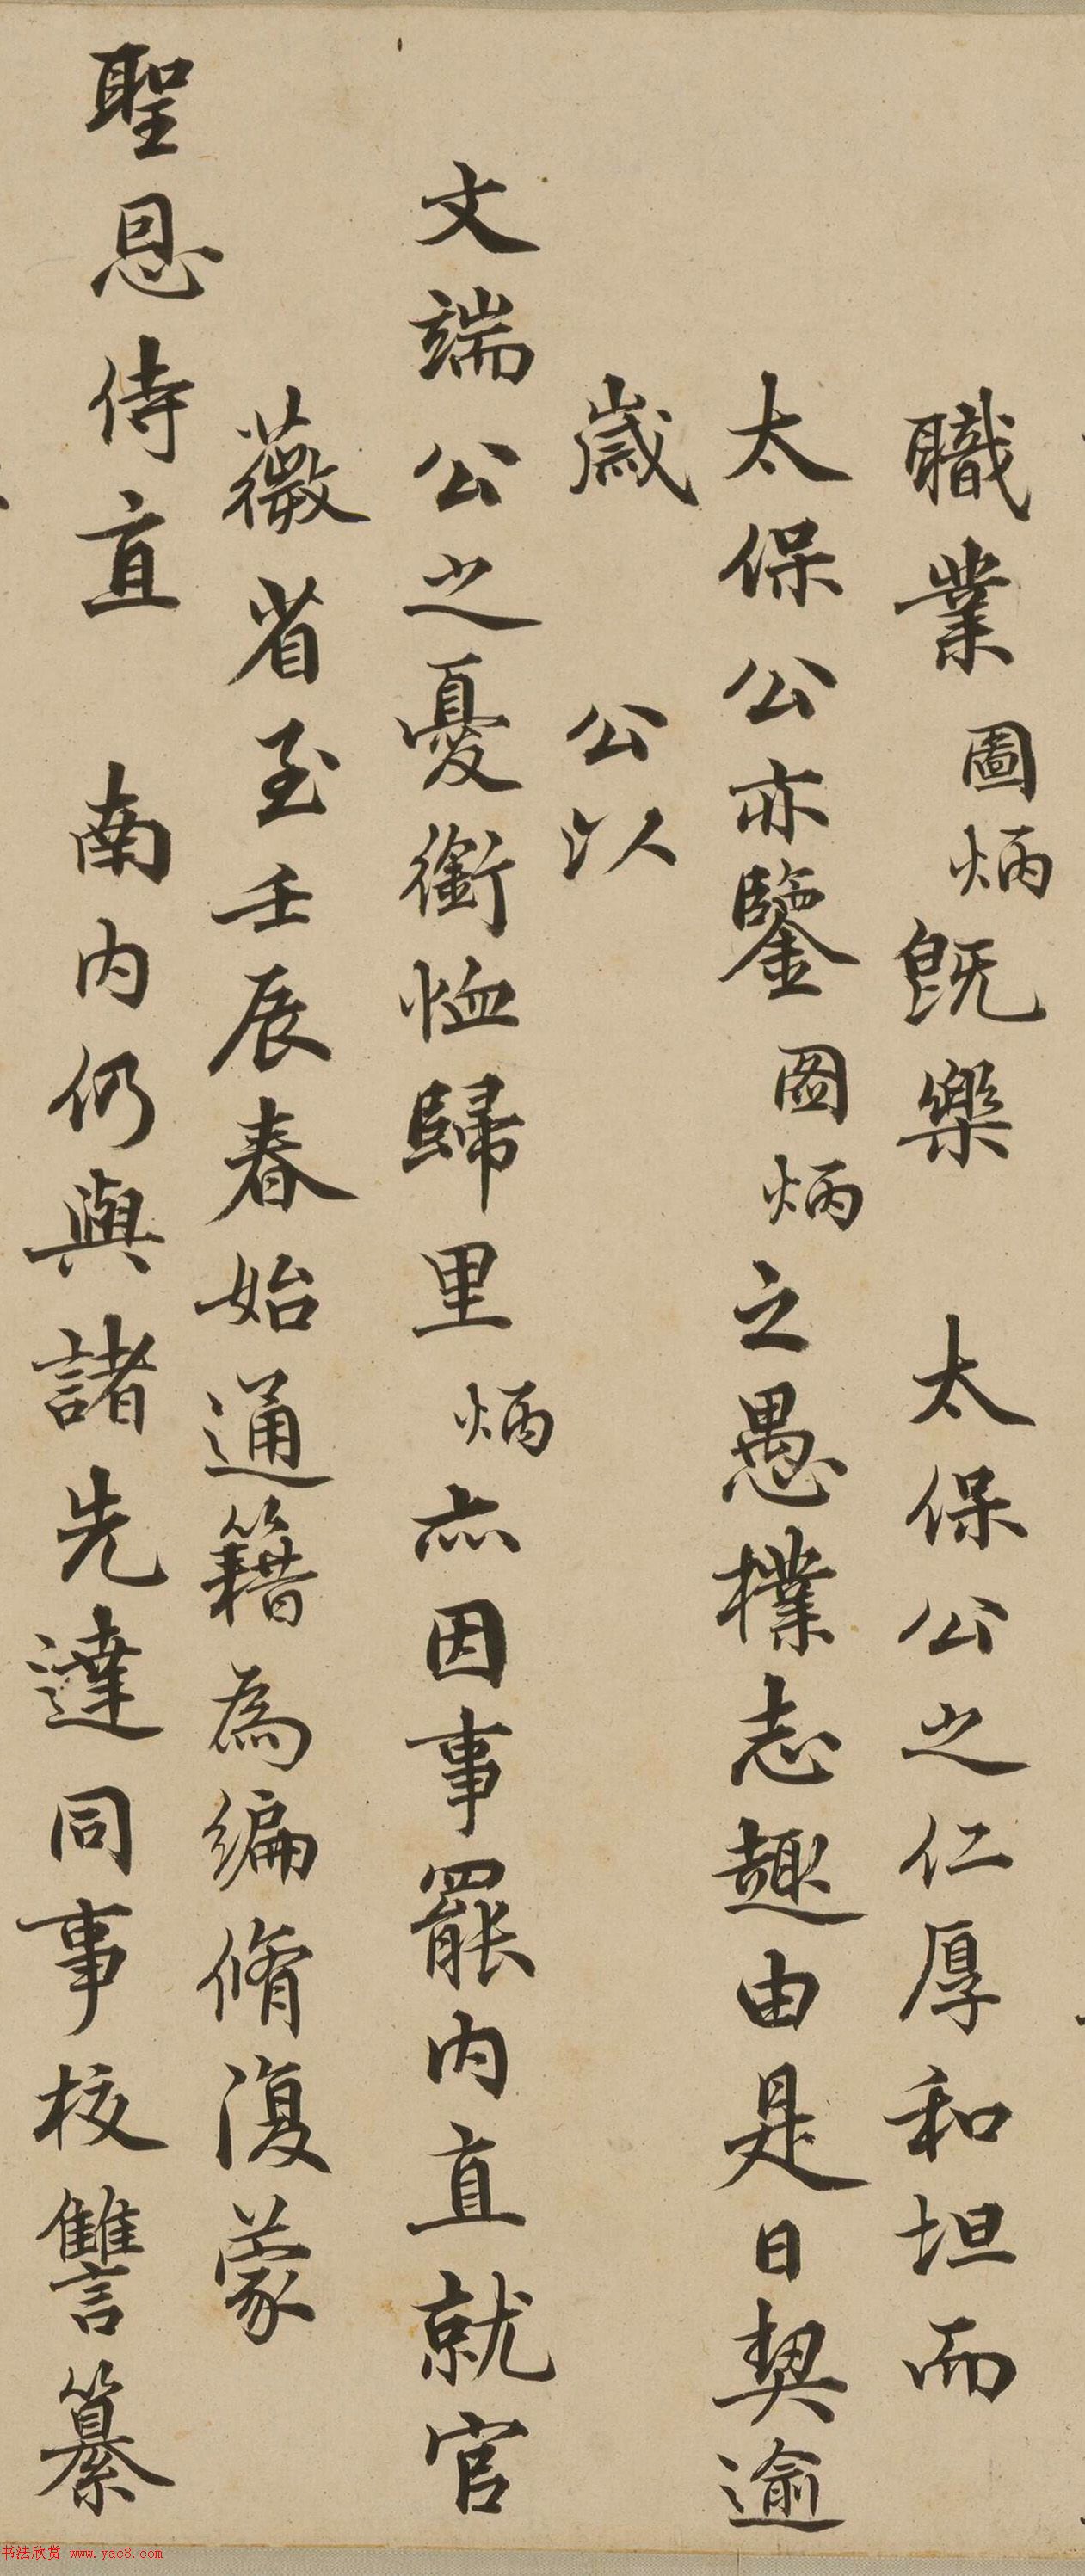 職業圖炳既樂　太保公之仁厚和坦而
太保公亦鑒圖炳之愚樸志趣由是日契逾
歲　公以
文端公之憂銜恤歸里炳亦因事罷內直就官
薇省至壬辰春始通籍為編脩復蒙
聖恩侍直　南內仍與諸先達同事校讐纂
书法欣赏 www.yac8.com